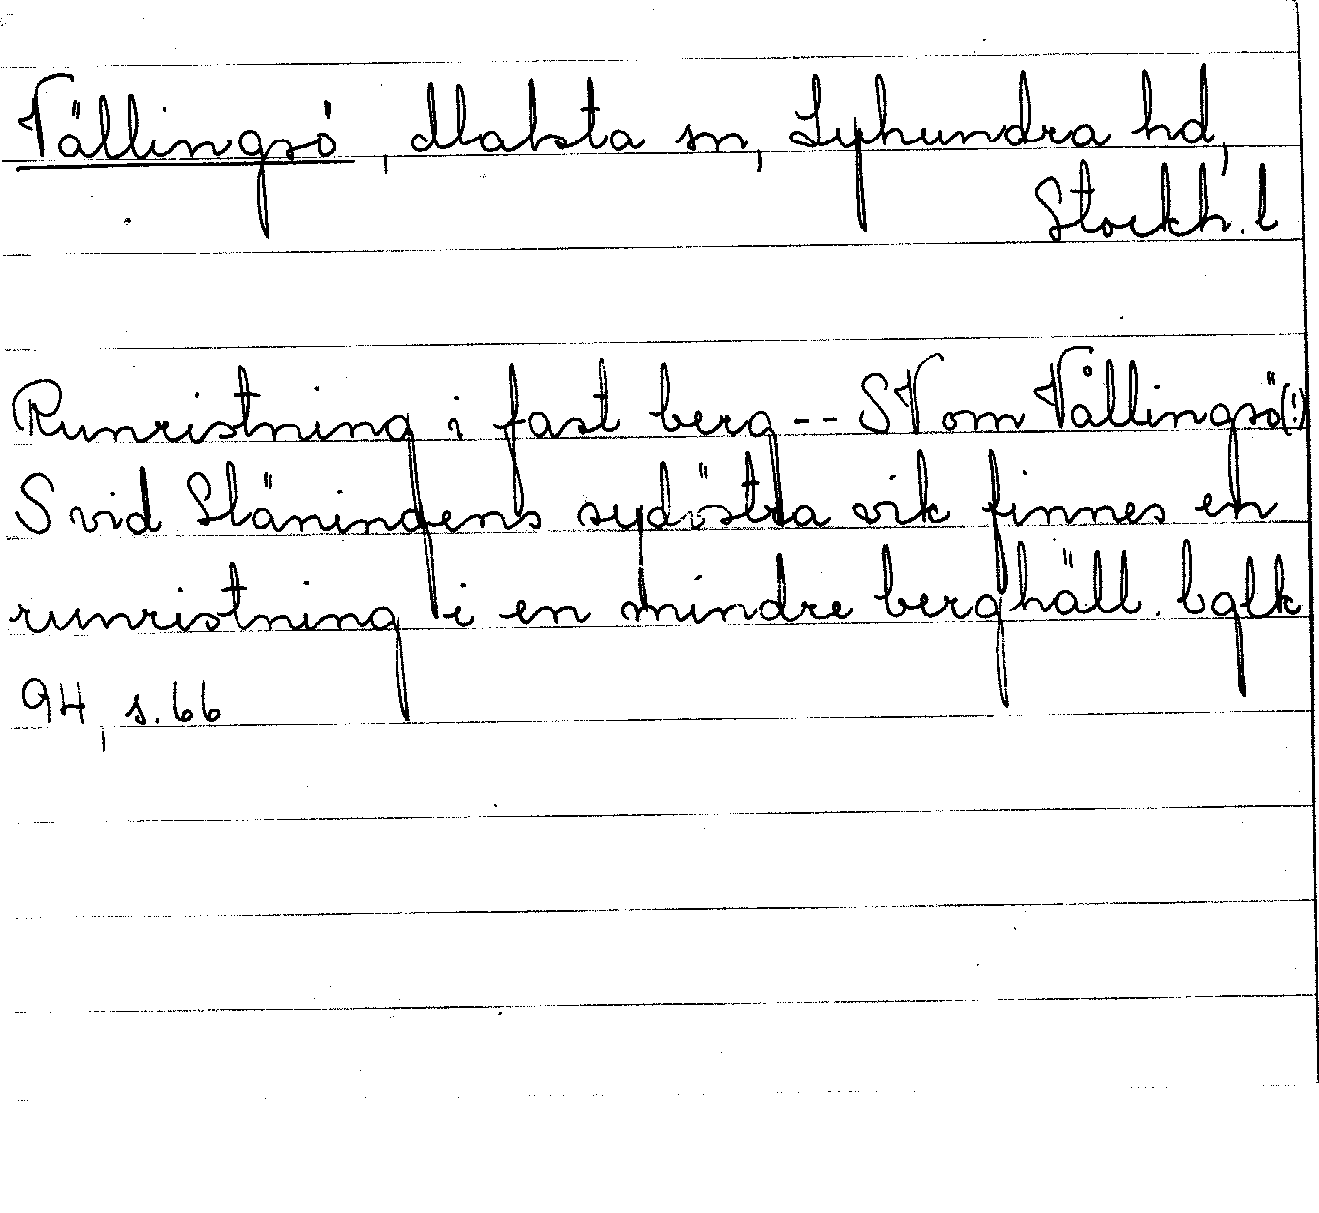 Vällingsö, Malsta sn, Lyhundra hd,
Stockh. l
Runristning i fast berg -- SV om Vållingsö(!)
S vid Släningens sydöstra vik finnes en
runristning i en mindre berghäll. bglk
94, s. 66